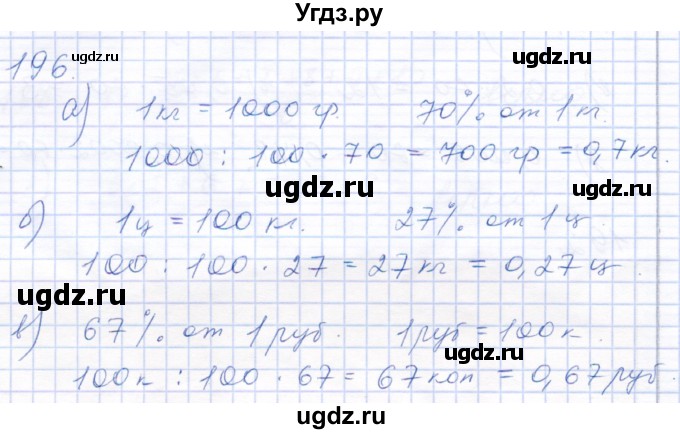 Угдз.ру
196.
ugdz.ru
ugdz.ru
ugdz.ru
а) 1кг = 1000 гр. 70% от 1 кг.
1000 : 100 · 70 = 700 гр = 0,7 кг.
ugdz.ru
ugdz.ru
б) 1 ц = 100 кг. 27% от 1 ц.
100 : 100 · 27 = 27 кг = 0,27 ц.
ugdz.ru
ugdz.ru
ugdz.ru
в) 67% от 1 руб. 1 руб = 100 к.
ugdz.ru
ugdz.ru
100к : 100 · 67 = 67 коп = 0,67 руб.
ugdz.ru
ugdz.ru